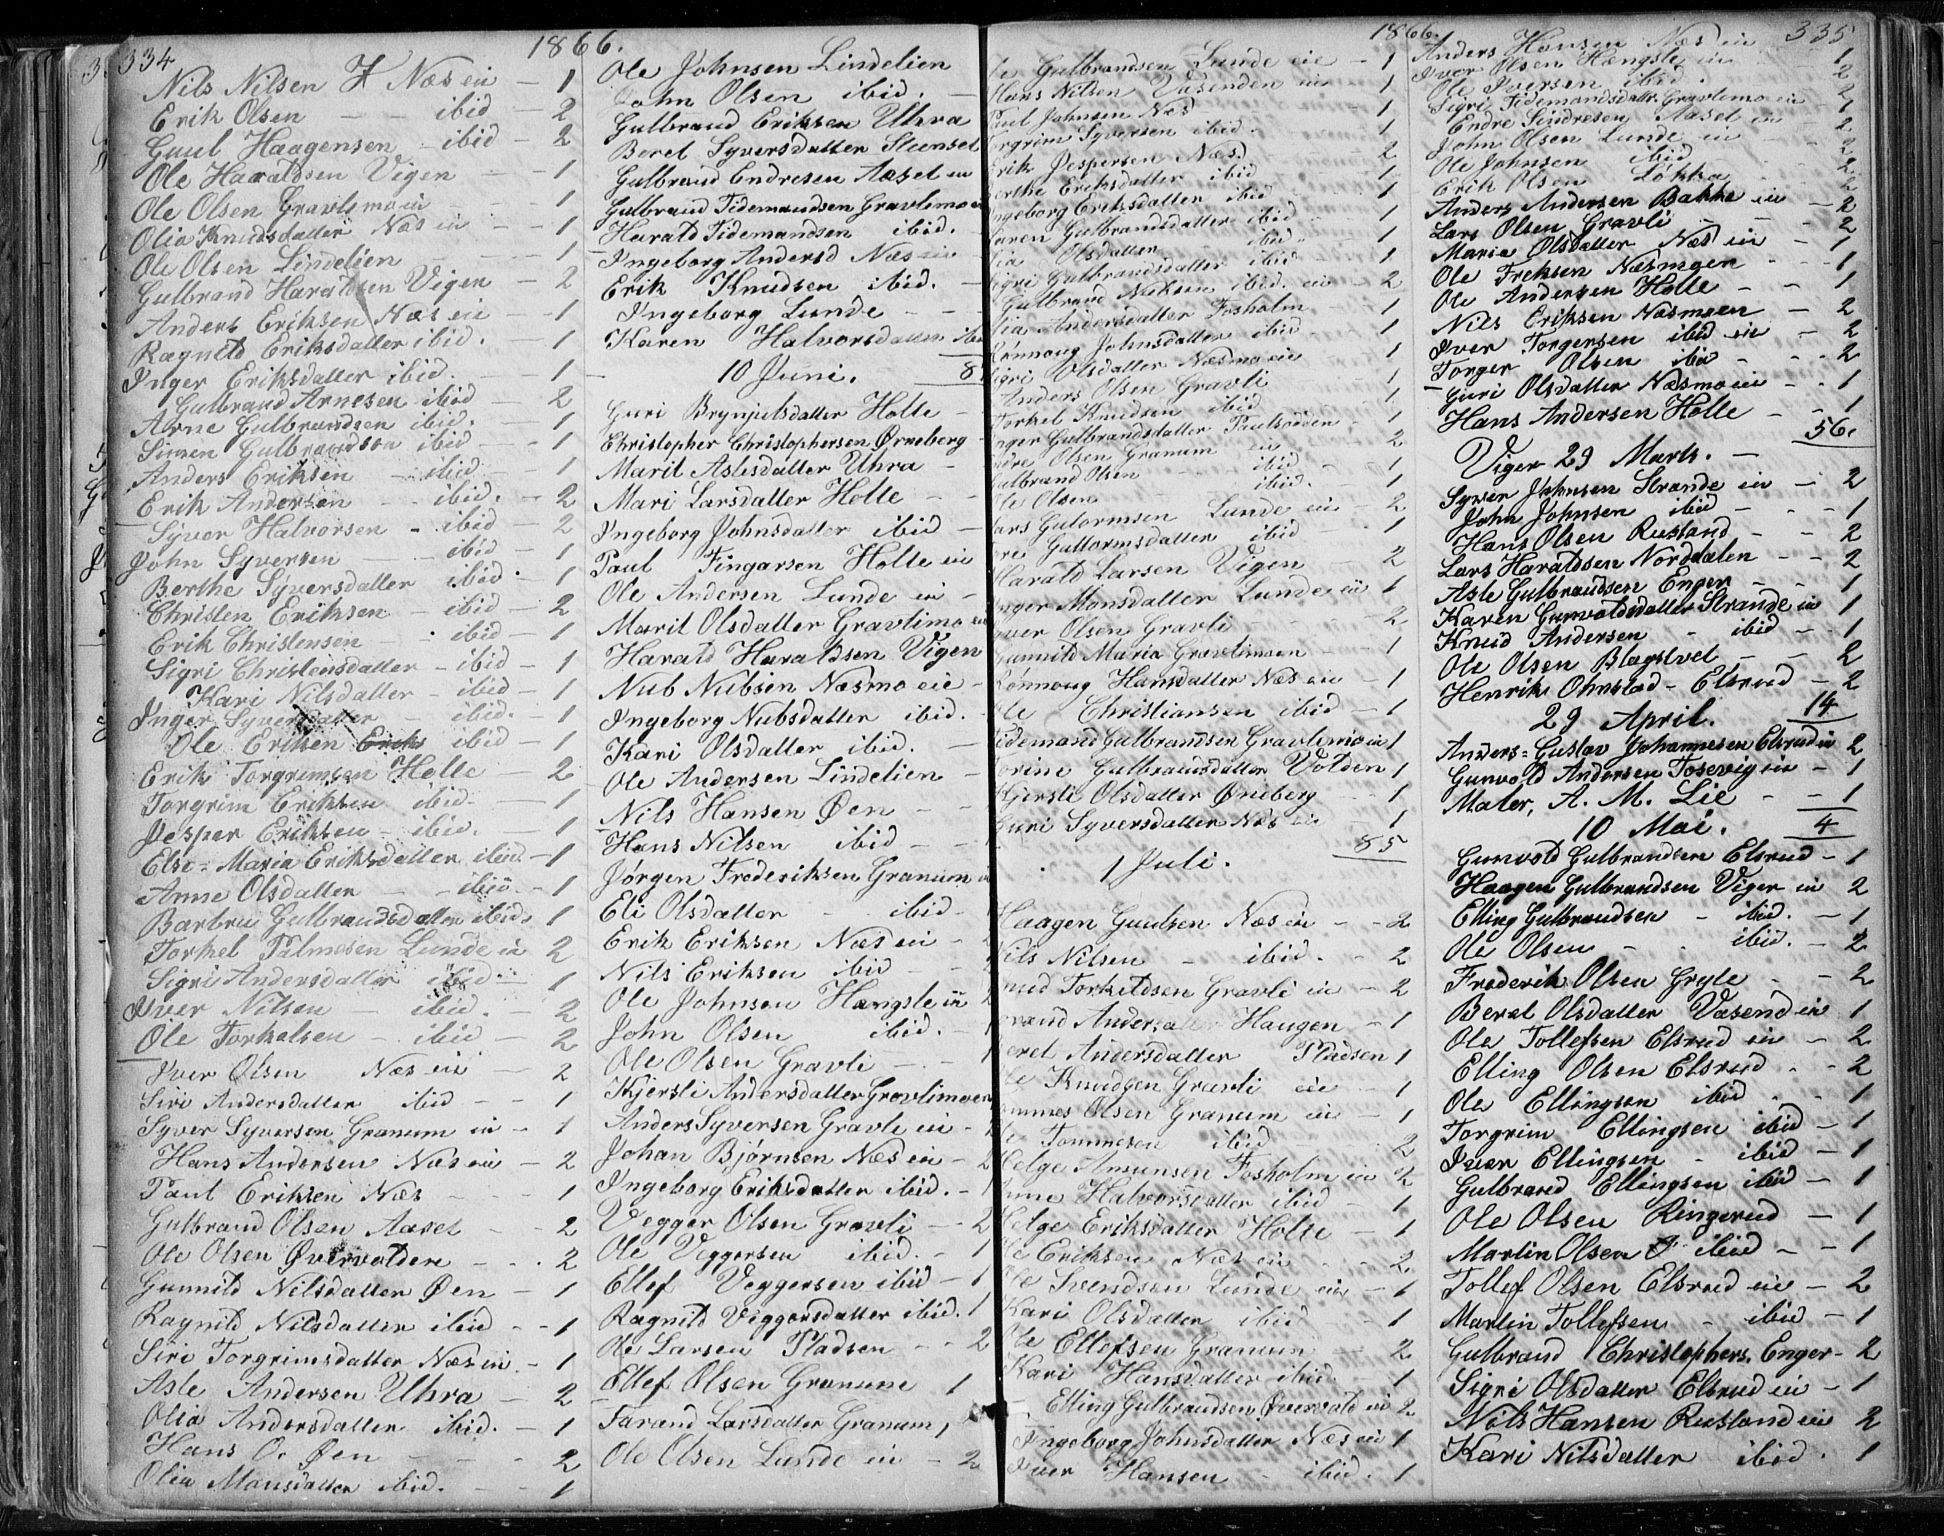 334
1866.
Nils Nilsen Næs eie - 1
Erik Olsen - - ibid 2
Guul Haagensen - ibid - 2
Ole Haraldsen Vigen - - 1
Ole Olsen Gravlimoein - 1
Olia Knudsdatter Næs ein - - 1
Ole Olsen Lindelien - 1
Gulbrand Haraldsen Vigen - 2
Anders Eriksen Næs eie - 1
Ragnild Eriksdatter ibid. - 1
Inger Eriksdatter ibid. - 1
Gulbrand Arnesen ibid - 2
Arne Gulbrandsen ibid. - 1
Simen Gulbrandson ibid - 1
Anders Eriksen - ibid - 1
Erik Andersen - ibid. - 2
Syver Halvorsen - ibid - 2
John Syversen - ibid - 1
Berthe Syversdatter ibid. 1
Christen Eriksen - ibid - 2
Erik Christensen . ibid - 1
Sigri Christensdatter - ibid - 1
Kari Nilsdatter - ibid - 1
Inger Syversdatter - ibid. - 1
Ole Eriksen ibid - 1
Erik Torgrimsen Holte - 2
Torgrim Eriksen ibid. - 1
Jesper Eriksen - ibid. - 1
Else-Maria Eriksdatter ibid. - 1
Anne Olsdatter - - ibid. - 1
Barbru Gulbrandsdatter ibid. 1
Torkel Palmesen Lunde ein 2
Sigri Andersdatter ibid - 1
Iver Nilsen - ibid. - 2
Ole Torkelsen - ibid - 2
Iver Olsen Næs ein - 2
Siri Andersdatter ibid - - 1
Syver Syversen Granum ein - 1
Hans Andersen Næs ein - 2
Paul Eriksen Næs - - 1
Gulbrand Olsen Aasel - - 2
Ole Olsen Øvervolden - - . 2
Gunnild Nilsdatter Øen - 1
Ragnild Nilsdatter ibid - - 1
Siri Torgrimsdatter Næs ein. - 1
Asle Andersen Uhra - - 2
Olia Andersdatter ibid. - 1
Hans O. Øen - - - 2
Olia Monsdatter ibid. - - 1
Ole Johnsen Lindelien
John Olsen ibid. -
Gulbrand Eriksen Uhra
Beret Syversdatter
Gulbrand Endresen Aasel ein
Gulbrand Tidemandsen Gravlimo
Harald Tidemandsen ibid. -
Ingeborg Andersd Næs ein
Erik Knudsen ibid. -
Ingeborg Lunde - - -
Karen Halvorsdatter
10 Juni. 8
Guri Brynjulsdatter Holte -
Christopher Christophersen Ørneberg -
Marit Aslesdatter Uhra -
Mari Larsdatter Holte - -
Ingeborg Johnsdatter ibid -
Paul Fingarsen Holte ein
Ole Andersen Lunde ein -
Marit Olsdatter Gravlimo
Harald Haraldsen Vigen
Nub Nubsen Næsmo eie -
Ingeborg Nubsdatter ibid.
Kari Olsdatter ibid. -
Ole Andersen Lindelien -
Nils Hansen Øen - -
Hans Nilsen ibid - -
Jørgen Frederiksen Granum
Eli Olsdatter - ibid -
Erik Eriksen Næs ein -
Nils Eriksen ibid -
Ole Johnsen Hængsle ein
John Olsen ibid. -
Ole Olsen Gravli - -
Kjersti Andersdatter Gravlimoen
Anders Syversen Gravli ein -
Johan Bjørnsen Næs ein - 2
Ingeborg Eriksdatter ibid. - 1
Vegger Olsen Gravli - - 2
Ole Veggersen ibid. - 1
Ellef Veggersen ibid - 1
Ragnild Viggersdatter ibid. 1
Ole Larsen Pladsen - - 2
Ellef Olsen Granum 1
Tarand Larsdatter Granum 1
Ole Olsen Lunde ein - 2
1866.
335
Gulbrandsen Lunde eie - 1
Hans Nilsen Vasenden ein - 1
Paul Johnsen Næs - 1
Syversen ibid. 1
Erik Jespersen Næs - 2
Berthe Eriksdatter ibid 1
Ingeborg Eriksdatter ibid - 1
Karen Gulbrandsdatter ibid 1
Olsdatter - ibid - 1
Sigri Gulbrandsdatter ibid - 1
Gulbrand ibid. ein - 2
Andersdatter Fosholm 1
Rønnoug Johnsdatter ibid 1
Sigri Olsdatter Næsmoein 1
Anders Olsen Gravli - 1
Torkel Knudsen ibid - 1
Inger Gulbrandsdatter - 1
Endre Olsen Granum ein - 2
Gulbrand Olsen - ibid - 1
Ole Olsen - ibid. - 1
Lars Gutormsen Lunde ein - 2
Guttormsdatter ibid - 1
Harald Larsen Vigen - 2
Inger Monsdatter Lunde ein 1
Syver Olsen Gravli - 2
Gunnild Maria Gravlimoen - - 1
Rønnoug Hansdatter Næs ein - 1
Ole Christiansen ibid - 1
Tidemand Gulbrandsen Gravlimoein 1
Torine Gulbrandsdatter Volden 1
Kjersti Olsdatter Øneberg - - 1
Guri Syversdatter Næs ein - 1
1 Juli. 85
Haagen Guulsen Næs ein - - 2
Nils Nilsen - ibid. - 2
Knud Torkildsen Gravli ein - 2
Haugen - 1
Beret Andersdatter Pladsen 1
Ole Knudsen Gravli eie - 1
Tommes Olsen Granum ein - 1
Ole Tommesen ibid - 2
Helge Amunsen Fosholm ein 2
Anne Halvorsdatter ibid - 1
Helge Eriksdatter Holte - 1
Ole Eriksen Næs ein - . 2
Ole Svendsen Lunde ein - 1
Kari Olsdatter ibid - 1
Ole Ellefsen Granum - - 2
Kari Hansdatter ibid. - 1
Elling Gulbrandsen Øvervold ein 2
Ingeborg Johnsdatter Næs ein 1
Iver Hansen - ibid. 1
Anders Hansen Næs ein 1
Iver Olsen Hængsle ein 2
Ole Iversen ibid. - 2
Sigri Tidemandsdatter Gravlimo ein - 1
Endre Sindresen Aasel ein - 2
John Olsen Lunde ein - 2
Ole Johnsen ibid 2
Erik Olsen Løkka 2
Anders Andersen Bakke ein - 2
Lars Olsen Gravli 2
Maria Olsdatter Næs ein - 1
Ole Næsmoen - - 1
Ole Andersen Holte - - 1
Nils Eriksen Næsmoen - 2
Iver Torgersen ibid ein - 2
Torger Olsen ibid - - 2
Guri Olsdatter Næsmoein - . 1
Hans Andersen Holte - - 1
56.
Viger 29 Marts. -
Syver Johnsen Strande ein - 2
John Johnsen ibid - - 1
Hans Olsen Rusland - - 2
Lars Haraldsen Norddalen - - 2
Asle Gulbrandsen Enger - - 1
Karen Gunvoldsdatter Strande ein 1
Knud Andersen - ibid - - 1
Ole Olsen Blagstvet - - 2
Henrik Ohnstad - Elsrud - 2
29 April. 14
Anders-Gustav Johannesen Elsrud ein 2
Gunvold Andersen Tosevig ein - 1
Maler, A. M. Lie - - 1
10 Mai. 4
Gunvold Gulbrandsen Elsrud - 1
Haagen Gulbrandsen Viger ein 2
Elling Gulbrandsen - ibid. - 1
Ole Olsen - ibid. - 2
Frederik Olsen Gryte - - 2
Beret Olsdatter Vasend ein 1
Ole Tollefsen Elsrud ein - 2
Elling Olsen Elsrud . - 2
Ole Ellingsen ibid - - 1
Torgrim Ellingsen ibid - 1
Iver Ellingsen - ibid - 1
Gulbrand Ellingsen ibid - 1
Ole Olsen Ringerud - 1
Martin Olsen ibid - - 1
Tollef Olsen Elsrud ein - 2
Martin Tollefsen - ibid - 1
Gulbrand Christophers. Enger - 2
Sigri Olsdatter Elsrud ein - 1
Nils Hansen Rusland ein 2
Kari Nilsdatter ibid . 1